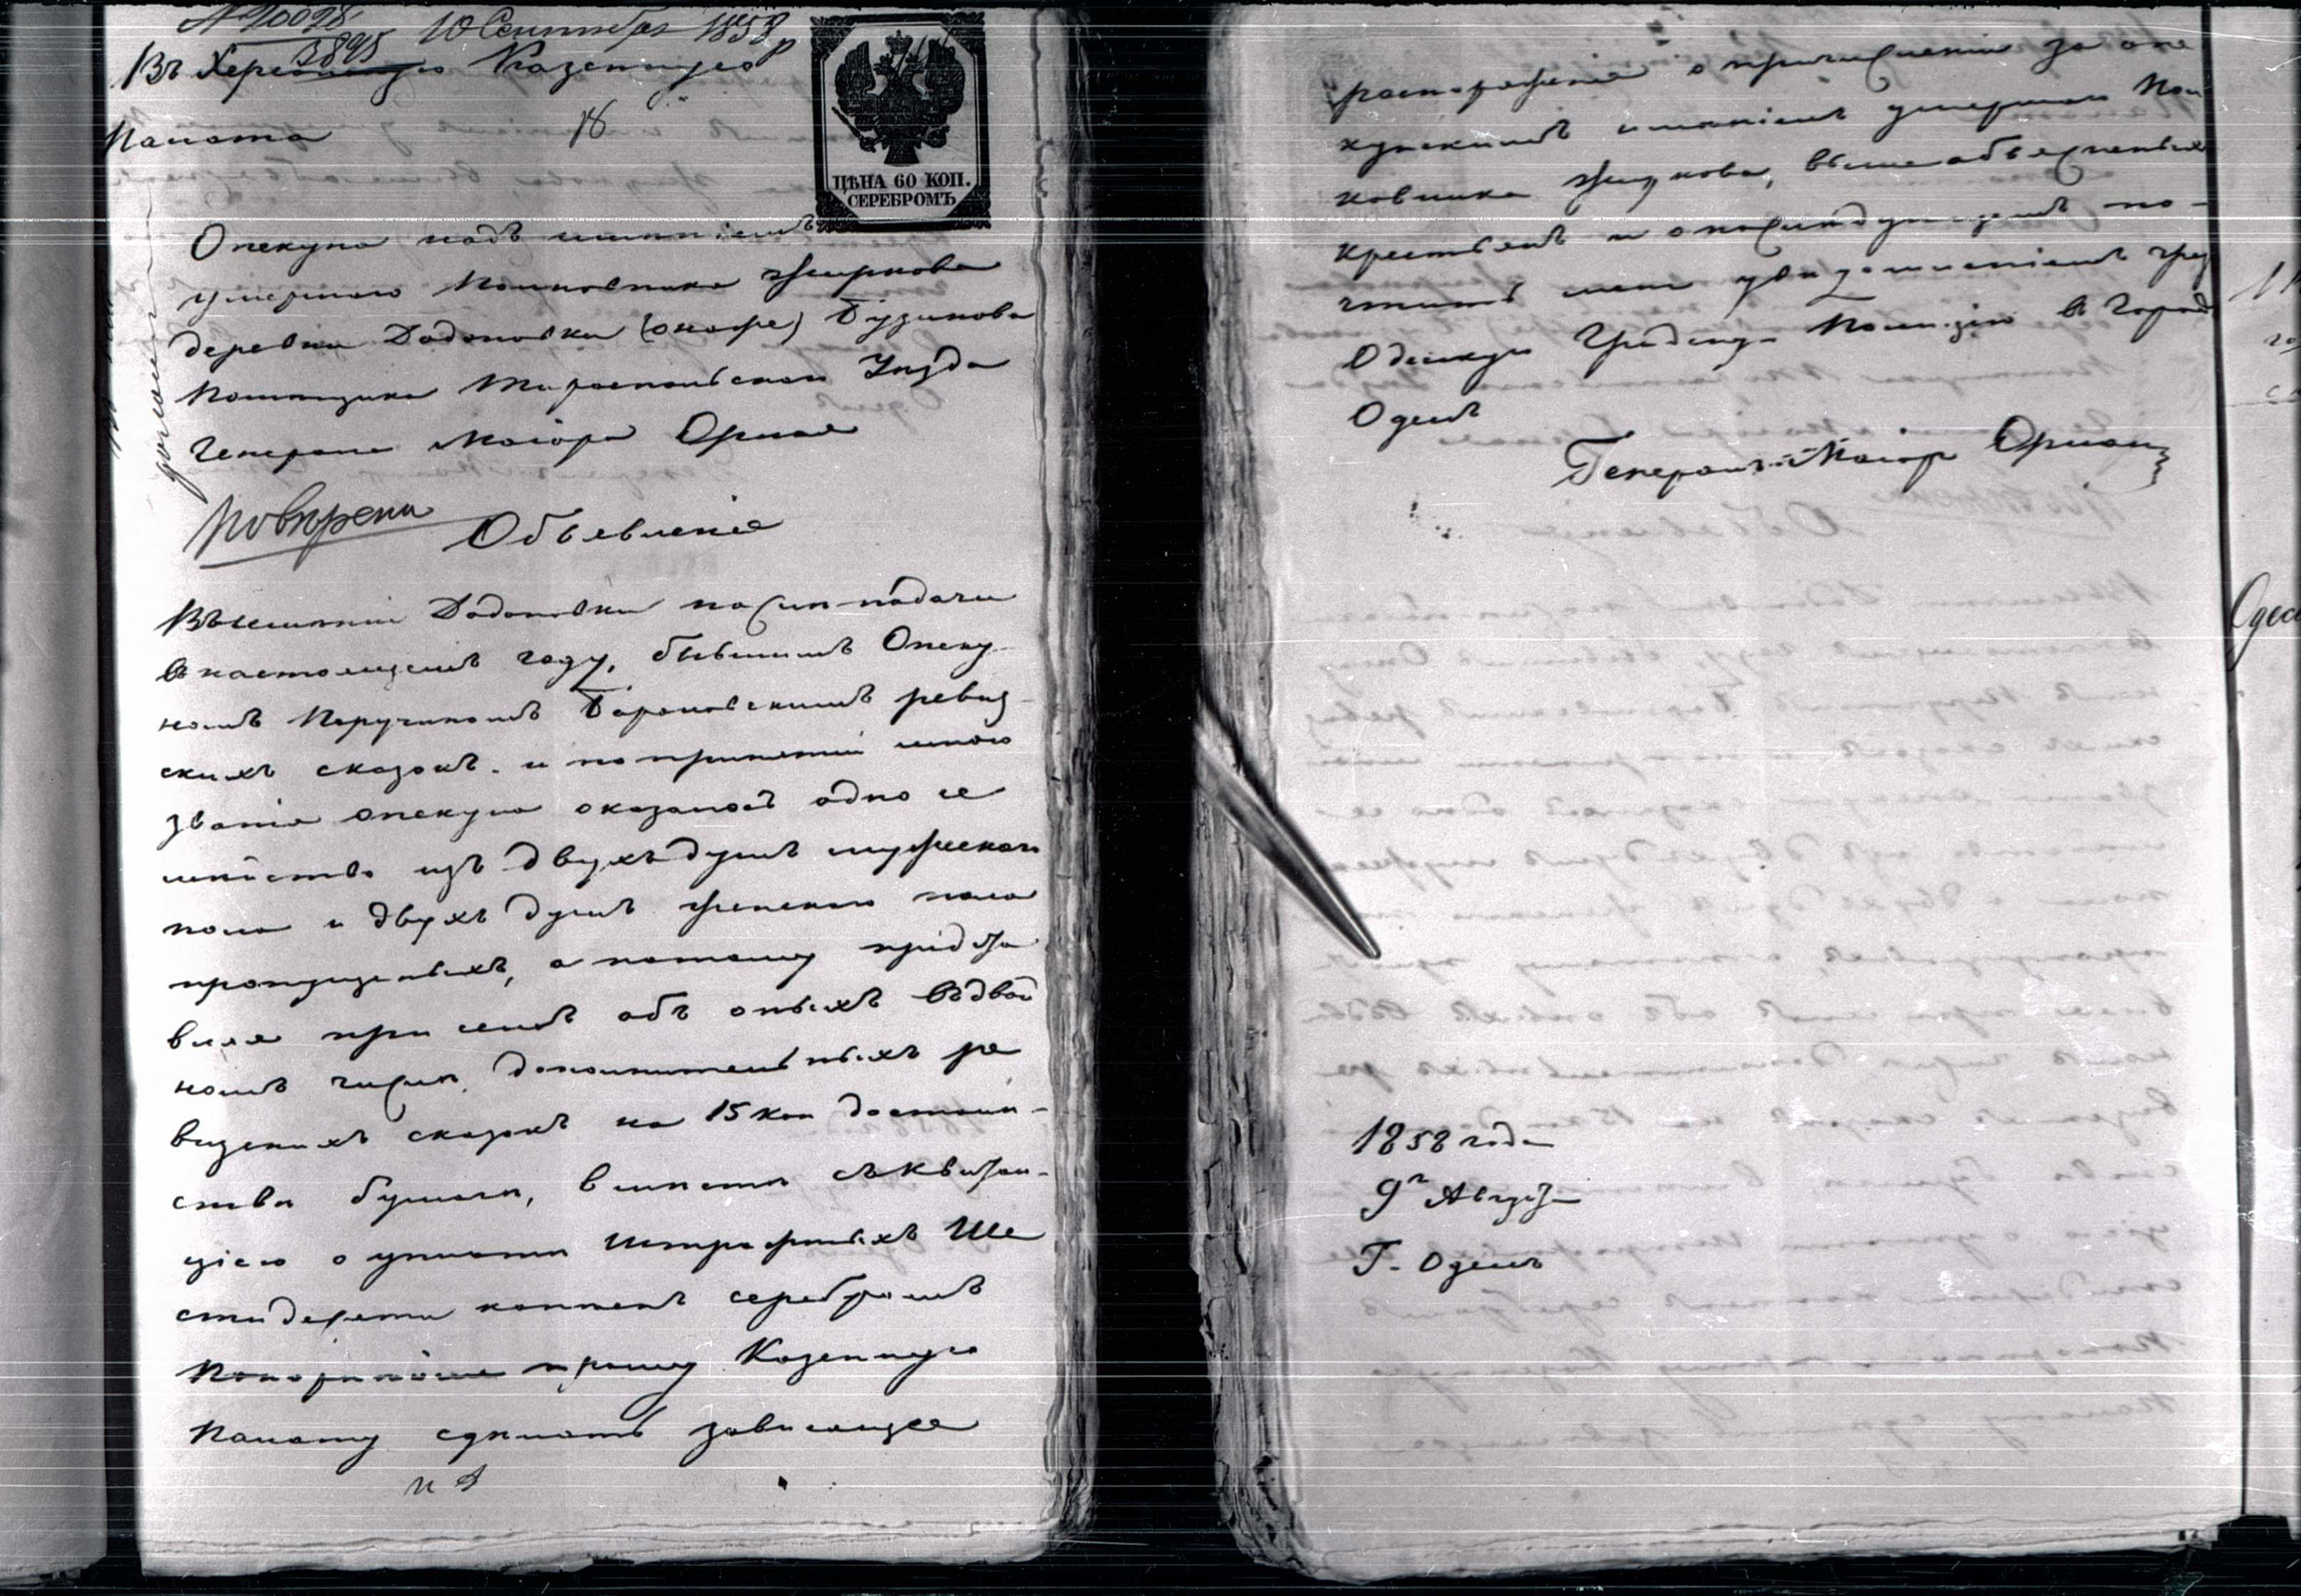 № 20098 10 Сентября 1858
3895
Въ Херсонскую Казенную
Палата
18
ЦѢНА 60 КОП.
СЕРЕБРОМЪ
Опекуна надъ имѣніемъ
умершаго Полковника Жиркова
деревни Додоновки (онаже) Бузинова
Помѣщика Тираспольскаго Уѣзда
Генералъ Маіора Орлая
Объявленіе
Въ имѣніи Додоновки послѣ подачи
въ настоящемъ году, бывшимъ Опеку
номъ Поручикомъ Барановскимъ ревиз
скихъ сказокъ. и по принятіи мною
званія опекуна оказалось одно се
мѣйство изъ двухъ душъ мужескаго
пола и двухъ душъ женскаго пола
пропущеныхъ, а потому предста
вляя при семъ объ оныхъ въ двой
номъ числѣ дополнительныхъ ре
визскихъ сказокъ на 15 коп достоин-
ства бумаги, вмѣстѣ съ квитан-
ціею о уплатѣ штрафныхъ Ше
стидесяти копѣекъ серебромъ
Покорнѣйше прошу Казенную
Палату сдѣлать зависящее
распоряженіе о причисленіи за опе
кунскимъ имѣніемъ умершаго Пол
ковника Жиркова, вышеобъясненныхъ
крестьянъ и о послѣдующемъ по-
чтить меня увѣдомленіемъ чрез
Одесскую Градскую Полицію въ Город
Одесѣ
Генералъ-Маіоръ Орлай
1858 года
9го Августа
Г. Одесъ